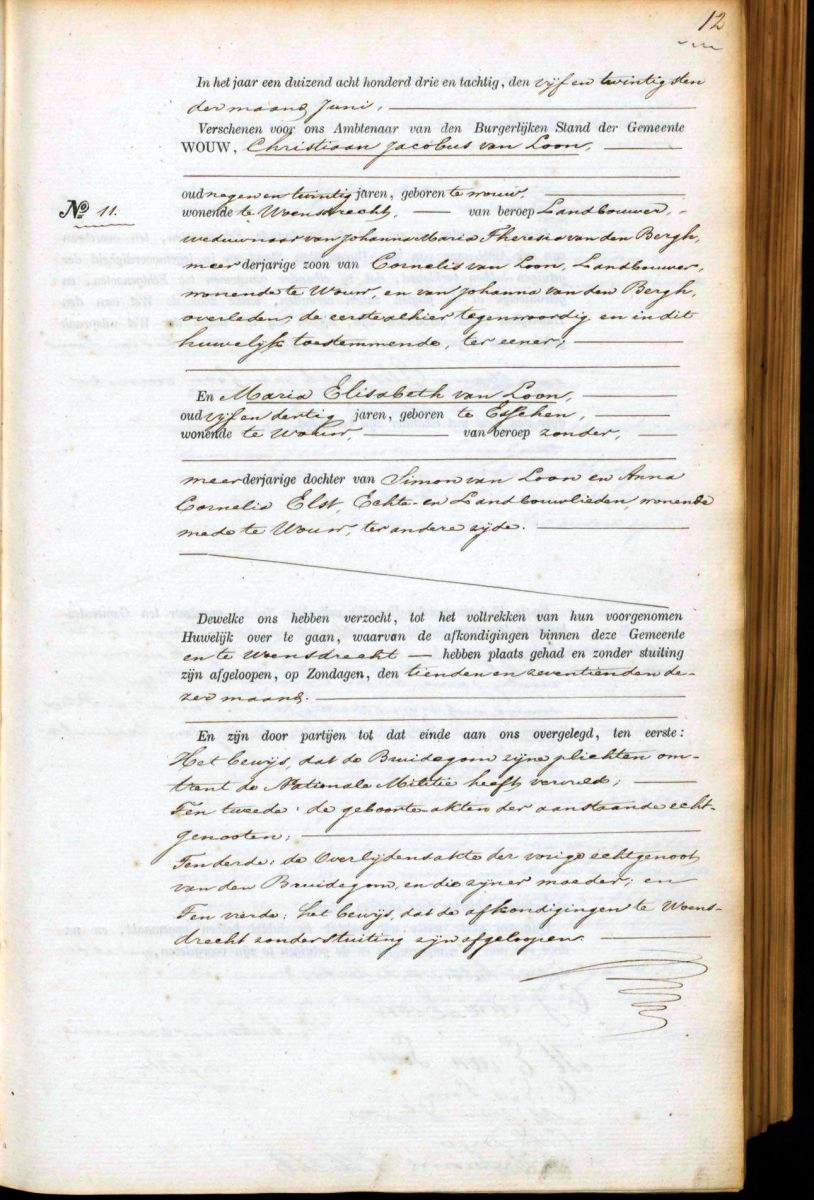 12
In het jaar een duizend acht honderd drie en tachtig, den vijf en twintigsten
der maand Juni,
Verschenen voor ons Ambtenaar van den Burgerlijken Stand der Gemeente
WOUW, Christiaan Jacobus van Loon,
oud negen en twintig jaren, geboren te Wouw,
No 11.
wonende te Woensdrecht, van beroep Landbouwer,
weduwnaar van Johanna Maria Theresia van den Bergh,
meerderjarige zoon van Cornelis van Loon, Landbouwer,
wonende te Wouw en van Johanna van den Bergh,
overleden, de eerste alhier tegenwoordig en in dit
huwelijk toestemmende, ter eener;
En Maria Elisabeth van Loon,
oud vijf en dertig jaren, geboren te Esschen,
wonende te Wouw, van beroep zonder,
meerderjarige dochter van Simon van Loon en Anna
Cornelia Elst, Echte- en Landbouwlieden, wonende
mede te Wouw, ter andere zijde.
Dewelke ons hebben verzocht, tot het voltrekken van hun voorgenomen
Huwelijk over te gaan, waarvan de afkondigingen binnen deze Gemeente
en te Woensdrecht hebben plaats gehad en zonder stuiting
zijn afgeloopen, op Zondagen, den tienden en zeventienden de-
zer maand.
En zijn door partijen tot dat einde aan ons overgelegd, ten eerste:
Het bewijs, dat de Bruidegom zijne plichten om-
trent de Nationale Militie heeft vervuld;
Ten tweede: de geboorte-akten der aanstaande echt-
genooten;
Ten derde: de Overlijdensakte der vorige echtgenoot
van den Bruidegom, en die zijner moeder; en
Ten vierde: het bewijs, dat de afkondigingen te Woens-
drecht zonder stuiting zijn afgeloopen.